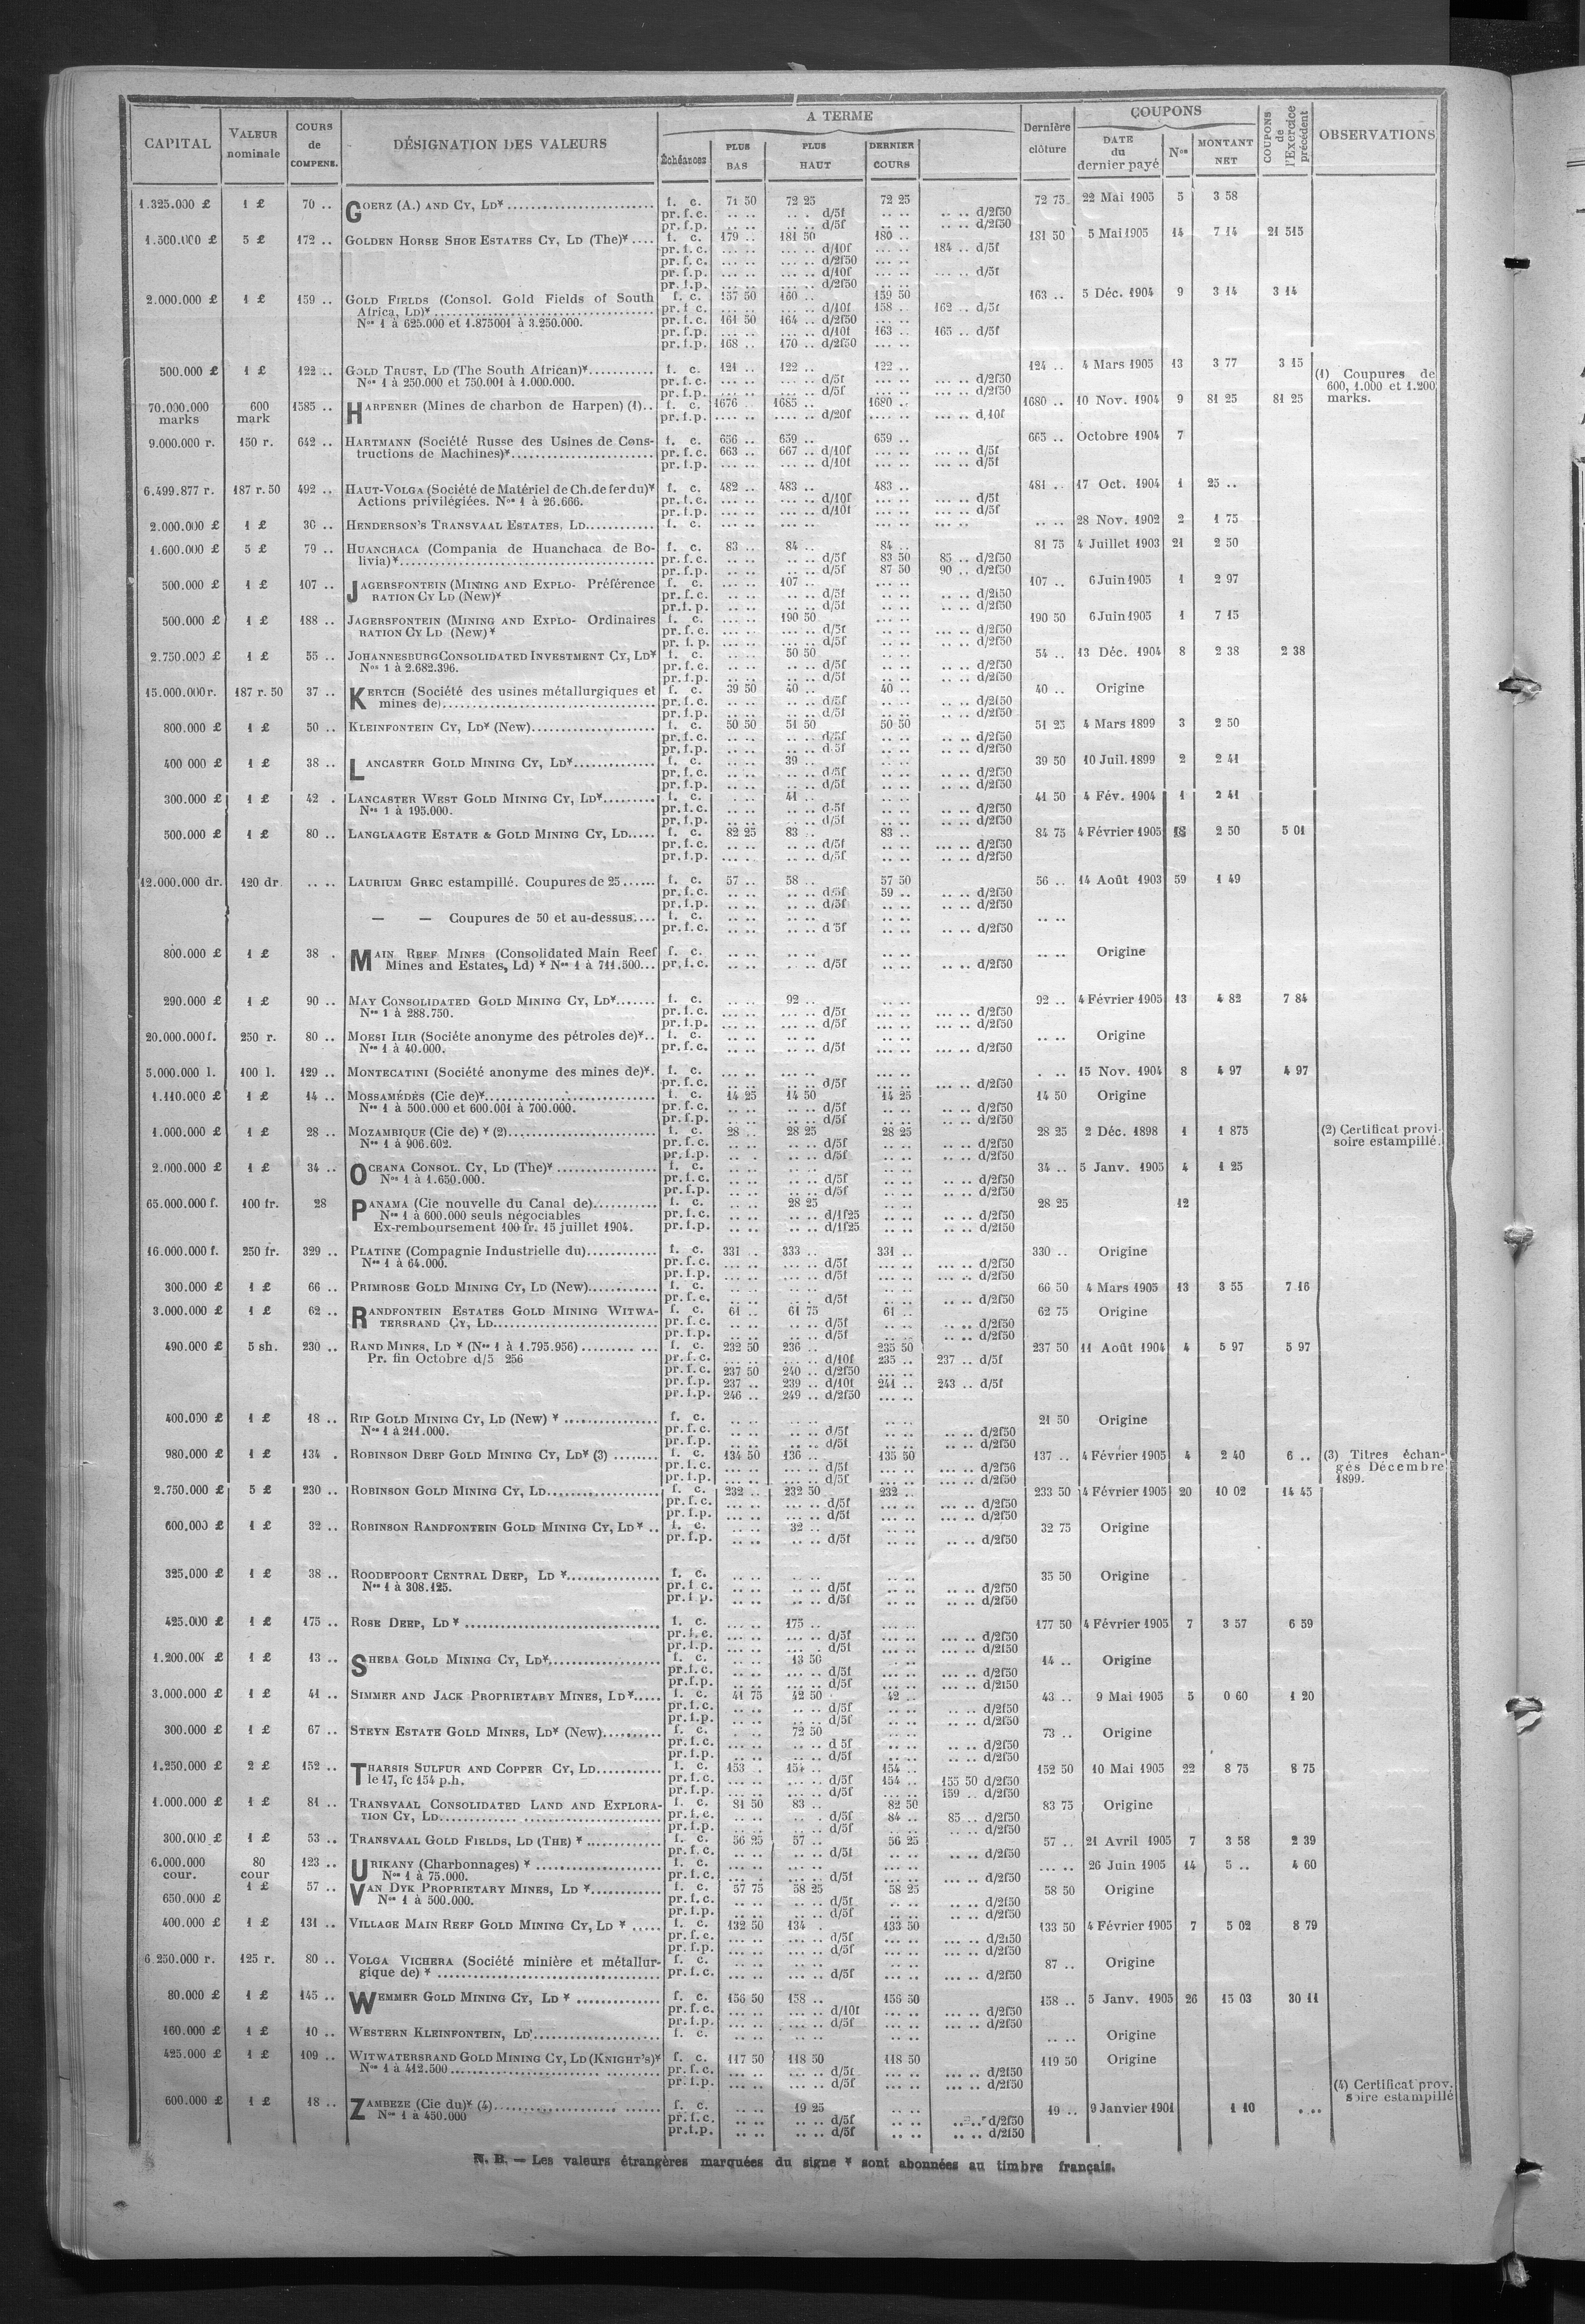 CAPITAL VALEUR nominale COURS de COMPENS. DÉSIGNATION DES VALEURS A TERME Échéances PLUS BAS PLUS HAUT DERNIER COURS Dernière clôture COUPONS DATE du dernier payé Nos MONTANT NET COUPONS de l'Exercice précédent OBSERVATIONS
1.325.000 £ 1 £ 70 .. GOERZ (A.) AND CY, LD¥ f. c. 71 50 72 25 72 25 72 75 22 Mai 1905 5 3 58
pr. f. c. .. .. .. .. d/5f .. .. .. .. d/2f50
pr. f. p. .. .. .. .. d/5f .. .. .. .. d/2f50
1.500.000 £ 5 £ 172 .. GOLDEN HORSE SHOE ESTATES CY, LD (The)¥ f. c. 179 .. 181 50 180 .. 181 50 5 Mai 1905 14 7 14 21 515
pr. f. c. ... .. ... .. d/10f ... .. 184 .. d/5f
pr. f. c. ... .. ... .. d/2f50 ... ..
pr. f. p. ... .. ... .. d/10f ... .. ... .. d/5f
pr. f. p. ... .. ... .. d/2f50 ... ..
2.000.000 £ 1 £ 159 .. GOLD FIELDS (Consol. Gold Fields of South f. c. 157 50 160 .. 159 50 163 .. 5 Déc. 1904 9 3 14 3 14
Africa, LD)¥ pr. f. c. ... .. ... .. d/10f 158 .. 162 .. d/5f
Nos 1 à 625.000 et 1.875001 à 3.250.000. pr. f. c. 161 50 164 .. d/2f50 ... ..
pr. f. p. ... .. ... .. d/10f 163 .. 165 .. d/5f
pr. f. p. 168 .. 170 .. d/2f50 ... ..
500.000 £ 1 £ 122 .. GOLD TRUST, LD (The South African)¥ f. c. 121 .. 122 .. 122 .. 124 .. 4 Mars 1905 13 3 77 3 15 (1) Coupures de
Nos 1 à 250.000 et 750.001 à 1.000.000. pr. f. c. ... .. ... .. d/5f ... .. ... .. d/2f50 600, 1.000 et 1.200
pr. f. p. ... .. ... .. d/5f ... .. ... .. d/2f50 marks.
70.000.000 marks 600 mark 1585 .. HARPENER (Mines de charbon de Harpen) (1) f. c. 1676 .. 1685 .. 1680 .. 1680 .. 10 Nov. 1904 9 81 25 81 25
pr. f. p. .... .. .... .. d/20f .... .. .... .. d,10f
9.000.000 r. 150 r. 642 .. HARTMANN (Société Russe des Usines de Cons- f. c. 656 .. 659 .. 659 .. 665 .. Octobre 1904 7
tructions de Machines)¥ pr. f. c. 663 .. 667 .. d/10f ... .. ... .. d/5f
pr. f. p. ... .. ... .. d/10f ... .. ... .. d/5f
6.499.877 r. 187 r. 50 492 .. HAUT-VOLGA (Société de Matériel de Ch. de fer du)¥ f. c. 482 .. 483 .. 483 .. 481 .. 17 Oct. 1904 1 25 ..
Actions privilégiées. Nos 1 à 26.666. pr. f. c. ... .. ... .. d/10f ... .. ... .. d/5f
pr. f. p. ... .. ... .. d/10f ... .. ... .. d/5f
2.000.000 £ 1 £ 30 .. HENDERSON'S TRANSVAAL ESTATES, LD f. c. ... .. ... .. ... .. ... .. .. .. 28 Nov. 1902 2 1 75
1.600.000 £ 5 £ 79 .. HUANCHACA (Compania de Huanchaca de Bo- f. c. 83 .. 84 .. 84 .. 81 75 4 Juillet 1903 21 2 50
livia)¥ pr. f. c. .. .. .. .. d/5f 83 50 85 .. d/2f50
pr. f. p. .. .. .. .. d/5f 87 50 90 .. d/2f50
500.000 £ 1 £ 107 .. JAGERSFONTEIN (MINING AND EXPLO- Préférence f. c. ... .. 107 .. ... .. 107 .. 6 Juin 1905 1 2 97
RATION CY LD (New)¥ pr. f. c. .. .. .. .. d/5f .. .. .. .. d/2f50
pr. f. p. .. .. .. .. d/5f .. .. .. .. d/2f50
500.000 £ 1 £ 188 .. JAGERSFONTEIN (MINING AND EXPLO- Ordinaires f. c. ... .. 190 50 ... .. 190 50 6 Juin 1905 1 7 15
RATION CY LD (New)¥ pr. f. c. ... .. ... .. d/5f ... .. ... .. d/2f50
pr. f. p. ... .. ... .. d/5f ... .. ... .. d/2f50
2.750.000 £ 1 £ 55 .. JOHANNESBURG CONSOLIDATED INVESTMENT CY, LD¥ f. c. .. .. 50 50 .. .. 54 .. 13 Déc. 1904 8 2 38 2 38
Nos 1 à 2.682.396. pr. f. c. .. .. .. .. d/5f .. .. .. .. d/2f50
pr. f. p. .. .. .. .. d/5f .. .. .. .. d/2f50
15.000.000 r. 187 r. 50 37 .. KERTCH (Société des usines métallurgiques et f. c. 39 50 40 .. 40 .. 40 .. Origine
mines de) pr. f. c. .. .. .. .. d/5f .. .. .. .. d/2f50
pr. f. p. .. .. .. .. d/5f .. .. .. .. d/2f50
800.000 £ 1 £ 50 .. KLEINFONTEIN CY, LD¥ (New) f. c. 50 50 51 50 50 50 51 25 4 Mars 1899 3 2 50
pr. f. c. .. .. .. .. d/5f .. .. .. .. d/2f50
pr. f. p. .. .. .. .. d 5f .. .. .. .. d/2f50
400 000 £ 1 £ 38 .. LANCASTER GOLD MINING CY, LD¥ f. c. .. .. 39 .. .. .. 39 50 10 Juil. 1899 2 2 41
pr. f. c. .. .. .. .. d/5f .. .. .. .. d/2f50
pr. f. p. .. .. .. .. d/5f .. .. .. .. d/2f50
300.000 £ 1 £ 42 . LANCASTER WEST GOLD MINING CY, LD¥ f. c. .. .. 41 .. .. .. 41 50 4 Fév. 1904 1 2 41
Nos 1 à 195.000. pr. f. c. .. .. .. .. d 5f .. .. .. .. d/2f50
pr. f. p. .. .. .. .. d/5f .. .. .. .. d/2f50
500.000 £ 1 £ 80 .. LANGLAAGTE ESTATE & GOLD MINING CY, LD f. c. 82 25 83 .. 83 .. 84 75 4 Février 1905 18 2 50 5 01
pr. f. c. .. .. .. .. d/5f .. .. .. .. d/2f50
pr. f. p. .. .. .. .. d/5f .. .. .. .. d/2f50
12.000.000 dr. 120 dr. .. .. LAURIUM GREC estampillé. Coupures de 25 f. c. 57 .. 58 .. 57 50 56 .. 14 Août 1903 59 1 49
pr. f. c. .. .. .. .. d/5f 59 .. .. .. d/2f50
pr. f. p. .. .. .. .. d/5f .. .. .. .. d/2f50
— — Coupures de 50 et au-dessus f. c. .. .. .. .. .. .. .. ..
pr. f. c. .. .. .. .. d 5f .. .. .. .. d/2f50
800.000 £ 1 £ 38 . MAIN REEF MINES (Consolidated Main Reef f. c. .. .. .. .. .. .. .. .. Origine
Mines and Estates, Ld) ¥ Nos 1 à 711.500 pr. f. c. .. .. .. .. d/5f .. .. .. .. d/2f50
290.000 £ 1 £ 90 .. MAY CONSOLIDATED GOLD MINING CY, LD¥ f. c. .. .. 92 .. .. .. 92 .. 4 Février 1905 13 4 82 7 84
Nos 1 à 288.750. pr. f. c. ... .. ... .. d/5f ... .. ... .. d/2f50
pr. f. p. ... .. ... .. d/5f ... .. ... .. d/2f50
20.000.000 f. 250 r. 80 .. MOESI ILIR (Société anonyme des pétroles de)¥ f. c. .. .. .. .. ... .. .. .. Origine
Nos 1 à 40.000. pr. f. c. .. .. .. .. d/5f ... .. ... .. d/2f50
5.000.000 l. 100 l. 129 .. MONTECATINI (Société anonyme des mines de)¥ f. c. ... .. ... .. ... .. . .. 15 Nov. 1904 8 4 97 4 97
pr. f. c. .. .. .. .. d/5f .. .. .. .. d/2f50
1.110.000 £ 1 £ 14 .. MOSSAMÉDÈS (Cie de)¥ f. c. 14 25 14 50 14 25 14 50 Origine
Nos 1 à 500.000 et 600.001 à 700.000. pr. f. c. .. .. .. .. d/5f .. .. .. .. d/2f50
pr. f. p. .. .. .. .. d/5f .. .. .. .. d/2f50
1.000.000 £ 1 £ 28 .. MOZAMBIQUE (Cie de) ¥ (2) f. c. 28 .. 28 25 28 25 28 25 2 Déc. 1898 1 1 875 (2) Certificat provi-
Nos 1 à 906.602. pr. f. c. .. .. .. .. d/5f .. .. .. .. d/2f50 soire estampillé.
pr. f. p. .. .. .. .. d/5f .. .. .. .. d/2f50
2.000.000 £ 1 £ 34 .. OCEANA CONSOL. CY, LD (The)¥ f. c. .. .. .. .. .. .. 34 .. 5 Janv. 1905 4 1 25
Nos 1 à 1.650.000. pr. f. c. .. .. .. .. d/5f .. .. .. .. d/2f50
pr. f. p. .. .. .. .. d/5f .. .. .. .. d/2f50
65.000.000 f. 100 fr. 28 PANAMA (Cie nouvelle du Canal de) f. c. .. .. 28 25 .. .. 28 25 12
Nos 1 à 600.000 seuls négociables pr. f. c. .. .. .. .. d/1f25 .. .. .. .. d/2f50
Ex-remboursement 100 fr. 15 juillet 1904. pr. f. p. .. .. .. .. d/1f25 .. .. .. .. d/2f50
16.000.000 f. 250 fr. 329 .. PLATINE (Compagnie Industrielle du) f. c. 331 .. 333 .. 331 .. 330 .. Origine
Nos 1 à 64.000. pr. f. c. ... .. ... .. d/5f ... .. ... .. d/2f50
pr. f. p. ... .. ... .. d/5f ... .. ... .. d/2f50
300.000 £ 1 £ 66 .. PRIMROSE GOLD MINING CY, LD (New) f. c. .. .. .. .. .. .. 66 50 4 Mars 1905 13 3 55 7 16
pr. f. c. .. .. .. .. d/5f .. .. .. .. d/2f50
3.000.000 £ 1 £ 62 .. RANDFONTEIN ESTATES GOLD MINING WITWA- f. c. 61 .. 61 75 61 .. 62 75 Origine
TERSRAND CY, LD pr. f. c. .. .. .. .. d/5f .. .. .. .. d/2f50
pr. f. p. .. .. .. .. d/5f .. .. .. .. d/2f50
490.000 £ 5 sh. 230 .. RAND MINES, LD ¥ (Nos 1 à 1.795.956) f. c. 232 50 236 .. 235 50 237 50 11 Août 1904 4 5 97 5 97
Pr. fin Octobre d/5 256 pr. f. c. ... .. ... .. d/10f 235 .. 237 .. d/5f
pr. f. c. 237 50 240 .. d/2f50 ... ..
pr. f. p. 237 .. 239 .. d/10f 241 .. 243 .. d/5f
pr. f. p. 246 .. 249 .. d/2f50 ... ..
400.000 £ 1 £ 18 .. RIP GOLD MINING CY, LD (New) ¥ f. c. .. .. .. .. .. .. 21 50 Origine
Nos 1 à 211.000. pr. f. c. .. .. .. .. d/5f .. .. .. .. d/2f50
pr. f. p. .. .. .. .. d/5f .. .. .. .. d/2f50
980.000 £ 1 £ 134 . ROBINSON DEEP GOLD MINING CY, LD¥ (3) f. c. 134 50 136 .. 135 50 137 .. 4 Février 1905 4 2 40 6 .. (3) Titres échan-
pr. f. c. ... .. ... .. d/5f ... .. ... .. d/2f50 gés Décembre
pr. f. p. ... .. ... .. d/5f ... .. ... .. d/2f50 1899.
2.750.000 £ 5 £ 230 .. ROBINSON GOLD MINING CY, LD f. c. 232 .. 232 50 232 .. 233 50 4 Février 1905 20 10 02 14 45
pr. f. c. ... .. ... .. d/5f ... .. ... .. d/2f50
pr. f. p. ... .. ... .. d/5f ... .. ... .. d/2f50
600.000 £ 1 £ 32 .. ROBINSON RANDFONTEIN GOLD MINING CY, LD ¥ f. c. .. .. 32 .. .. .. 32 75 Origine
pr. f. p. .. .. .. .. d/5f .. .. .. .. d/2f50
325.000 £ 1 £ 38 .. ROODEPOORT CENTRAL DEEP, LD ¥ f. c. .. .. .. .. .. .. 35 50 Origine
Nos 1 à 308.125. pr. f c. .. .. .. .. d/5f .. .. .. .. d/2f50
pr. f p. .. .. .. .. d/5f .. .. .. .. d/2f50
425.000 £ 1 £ 175 .. ROSE DEEP, LD ¥ f. c. ... .. 175 .. ... .. 177 50 4 Février 1905 7 3 57 6 59
pr. f. c. ... .. ... .. d/5f ... .. ... .. d/2f50
pr. f. p. ... .. ... .. d/5f ... .. ... .. d/2f50
1.200.000 £ 1 £ 13 .. SHEBA GOLD MINING CY, LD¥ f. c. .. .. 13 50 .. .. 14 .. Origine
pr. f. c. .. .. .. .. d/5f .. .. .. .. d/2f50
pr. f. p. .. .. .. .. d/5f .. .. .. .. d/2f50
3.000.000 £ 1 £ 41 .. SIMMER AND JACK PROPRIETARY MINES, LD¥ f. c. 41 75 42 50 42 .. 43 .. 9 Mai 1905 5 0 60 1 20
pr. f. c. .. .. .. .. d/5f .. .. .. .. d/2f50
pr. f. p. .. .. .. .. d/5f .. .. .. .. d/2f50
300.000 £ 1 £ 67 .. STEYN ESTATE GOLD MINES, LD¥ (New) f. c. .. .. 72 50 .. .. 73 .. Origine
pr. f. c. .. .. .. .. d 5f .. .. .. .. d/2f50
pr. f. p. .. .. .. .. d/5f .. .. .. .. d/2f50
1.250.000 £ 2 £ 152 .. THARSIS SULFUR AND COPPER CY, LD f. c. 153 .. 154 .. 154 .. 152 50 10 Mai 1905 22 8 75 8 75
le 17, fc 154 p.h. pr. f. c. ... .. ... .. d/5f 154 .. 155 50 d/2f50
pr. f. p. ... .. ... .. d/5f ... .. 159 .. d/2f50
1.000.000 £ 1 £ 81 .. TRANSVAAL CONSOLIDATED LAND AND EXPLORA- f. c. 81 50 83 .. 82 50 83 75 Origine
TION CY, LD pr. f. c. .. .. .. .. d/5f 84 .. 85 .. d/2f50
pr. f. p. .. .. .. .. d/5f .. .. .. .. d/2f50
300.000 £ 1 £ 53 .. TRANSVAAL GOLD FIELDS, LD (THE) ¥ f. c. 56 25 57 .. 56 25 57 .. 21 Avril 1905 7 3 58 2 39
pr. f. c. .. .. .. .. d/5f .. .. .. .. d/2f50
6.000.000 cour. 80 cour 123 .. URIKANY (Charbonnages) ¥ f. c. ... .. ... .. ... .. ... .. 26 Juin 1905 14 5 .. 4 60
Nos 1 à 75.000. pr. f. c. ... .. ... .. d/5f ... .. ... .. d/2f50
650.000 £ 1 £ 57 .. VAN DYK PROPRIETARY MINES, LD ¥ f. c. 57 75 58 25 58 25 58 50 Origine
Nos 1 à 500.000. pr. f. c. .. .. .. .. d/5f .. .. .. .. d/2f50
pr. f. p. .. .. .. .. d/5f .. .. .. .. d/2f50
400.000 £ 1 £ 131 .. VILLAGE MAIN REEF GOLD MINING CY, LD ¥ f. c. 132 50 134 . 133 50 133 50 4 Février 1905 7 5 02 8 79
pr. f. c. ... .. ... .. d/5f ... .. ... .. d/2f50
pr. f. p. ... .. ... .. d/5f ... .. ... .. d/2f50
6 250.000 r. 125 r. 80 .. VOLGA VICHERA (Société minière et métallur- f. c. ... .. ... .. ... .. 87 .. Origine
gique de) ¥ pr. f. c. ... .. ... .. d/5f ... .. ... .. d/2f50
80.000 £ 1 £ 145 .. WEMMER GOLD MINING CY, LD ¥ f. c. 156 50 158 .. 156 50 158 .. 5 Janv. 1905 26 15 03 30 11
pr. f. c. ... .. ... .. d/10f ... .. ... .. d/2f50
pr. f. p. ... .. ... .. d/5f ... .. ... .. d/2f50
160.000 £ 1 £ 10 .. WESTERN KLEINFONTEIN, LD f. c. .. .. .. .. .. .. .. .. Origine
425.000 £ 1 £ 109 .. WITWATERSRAND GOLD MINING CY, LD (KNIGHT'S)¥ f. c. 117 50 118 50 118 50 119 50 Origine
Nos 1 à 412.500 pr. f. c. ... .. ... .. d/5f ... .. ... .. d/2f50
pr. f. p. ... .. ... .. d/5f ... .. ... .. d/2f50 (4) Certificat prov.
600.000 £ 1 £ 18 .. ZAMBEZE (Cie du)¥ (4) f. c. .. .. 19 25 .. .. 19 .. 9 Janvier 1901 1 10 .. .. soire estampillé
Nos 1 à 450.000 pr. f. c. .. .. .. .. d/5f .. .. .. .. d/2f50
pr. f. p. .. .. .. .. d/5f .. .. .. .. d/2f50
N. B. — Les valeurs étrangères marquées du signe ¥ sont abonnées au timbre français.